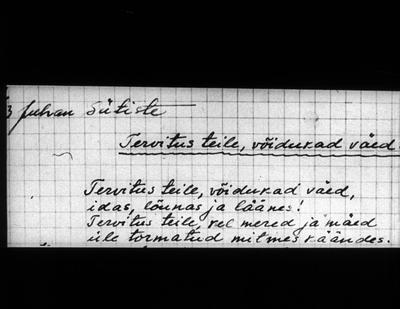 Juhan Sütiste
Tervitus teile, võidukad väed.
Tervitus teile, võidukad väed,
idas, lõunas ja läänes!
Tervitus teile, kel mered ja mäed
üle tormatud mitmes käändes.